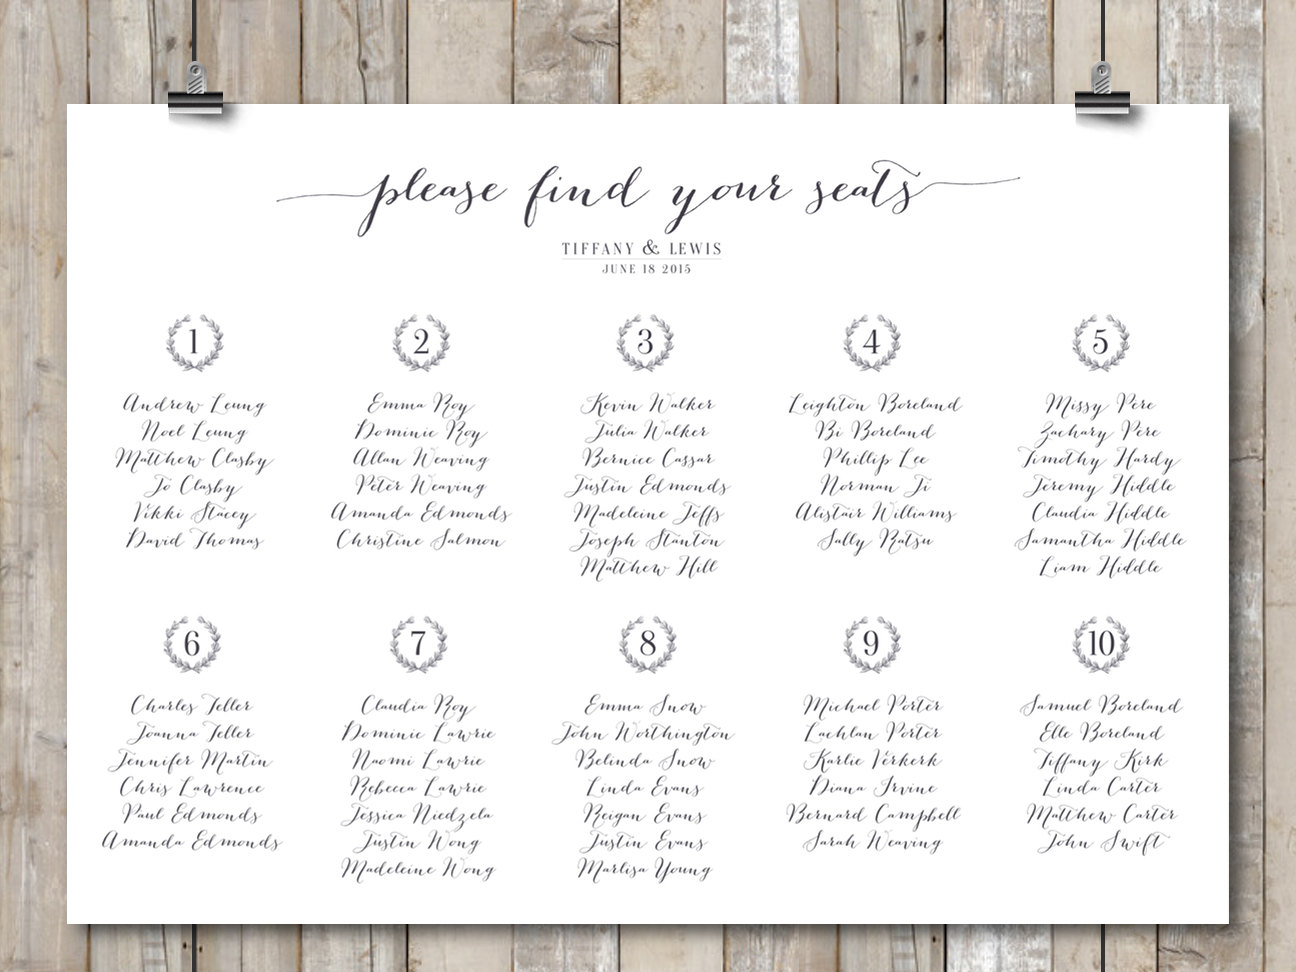 please find your seats
TIFFANY & LEWIS
JUNE 18 2015
1
Andrew Leung
Noel Leung
Matthew Clasby
Jo Clasby
Vikki Stacey
David Thomas
2
Emma Roy
Dominic Roy
Allan Weaving
Peter Weaving
Amanda Edmonds
Christine Salmon
3
Kevin Walker
Julia Walker
Bernice Cassar
Justin Edmonds
Madeleine Jeffs
Joseph Stanton
Matthew Hill
4
Leighton Boreland
Bi Boreland
Phillip Lee
Norman Ji
Alistair Williams
Sally Ratsu
5
Missy Pere
Zachary Pere
Timothy Hardy
Jeremy Hiddle
Claudia Hiddle
Samantha Hiddle
Liam Hiddle
6
Charles Teller
Joanna Teller
Jennifer Martin
Chris Lawrence
Paul Edmonds
Amanda Edmonds
7
Claudia Roy
Dominic Lawrie
Naomi Lawrie
Rebecca Lawrie
Jessica Niedzela
Justin Wong
Madeleine Wong
8
Emma Snow
John Worthington
Belinda Snow
Linda Evans
Reigan Evans
Justin Evans
Marlisa Young
9
Michael Porter
Lachlan Porter
Karlie Verkerk
Diana Irvine
Bernard Campbell
Sarah Weaving
10
Samuel Boreland
Elle Boreland
Tiffany Kirk
Linda Carter
Matthew Carter
John Swift